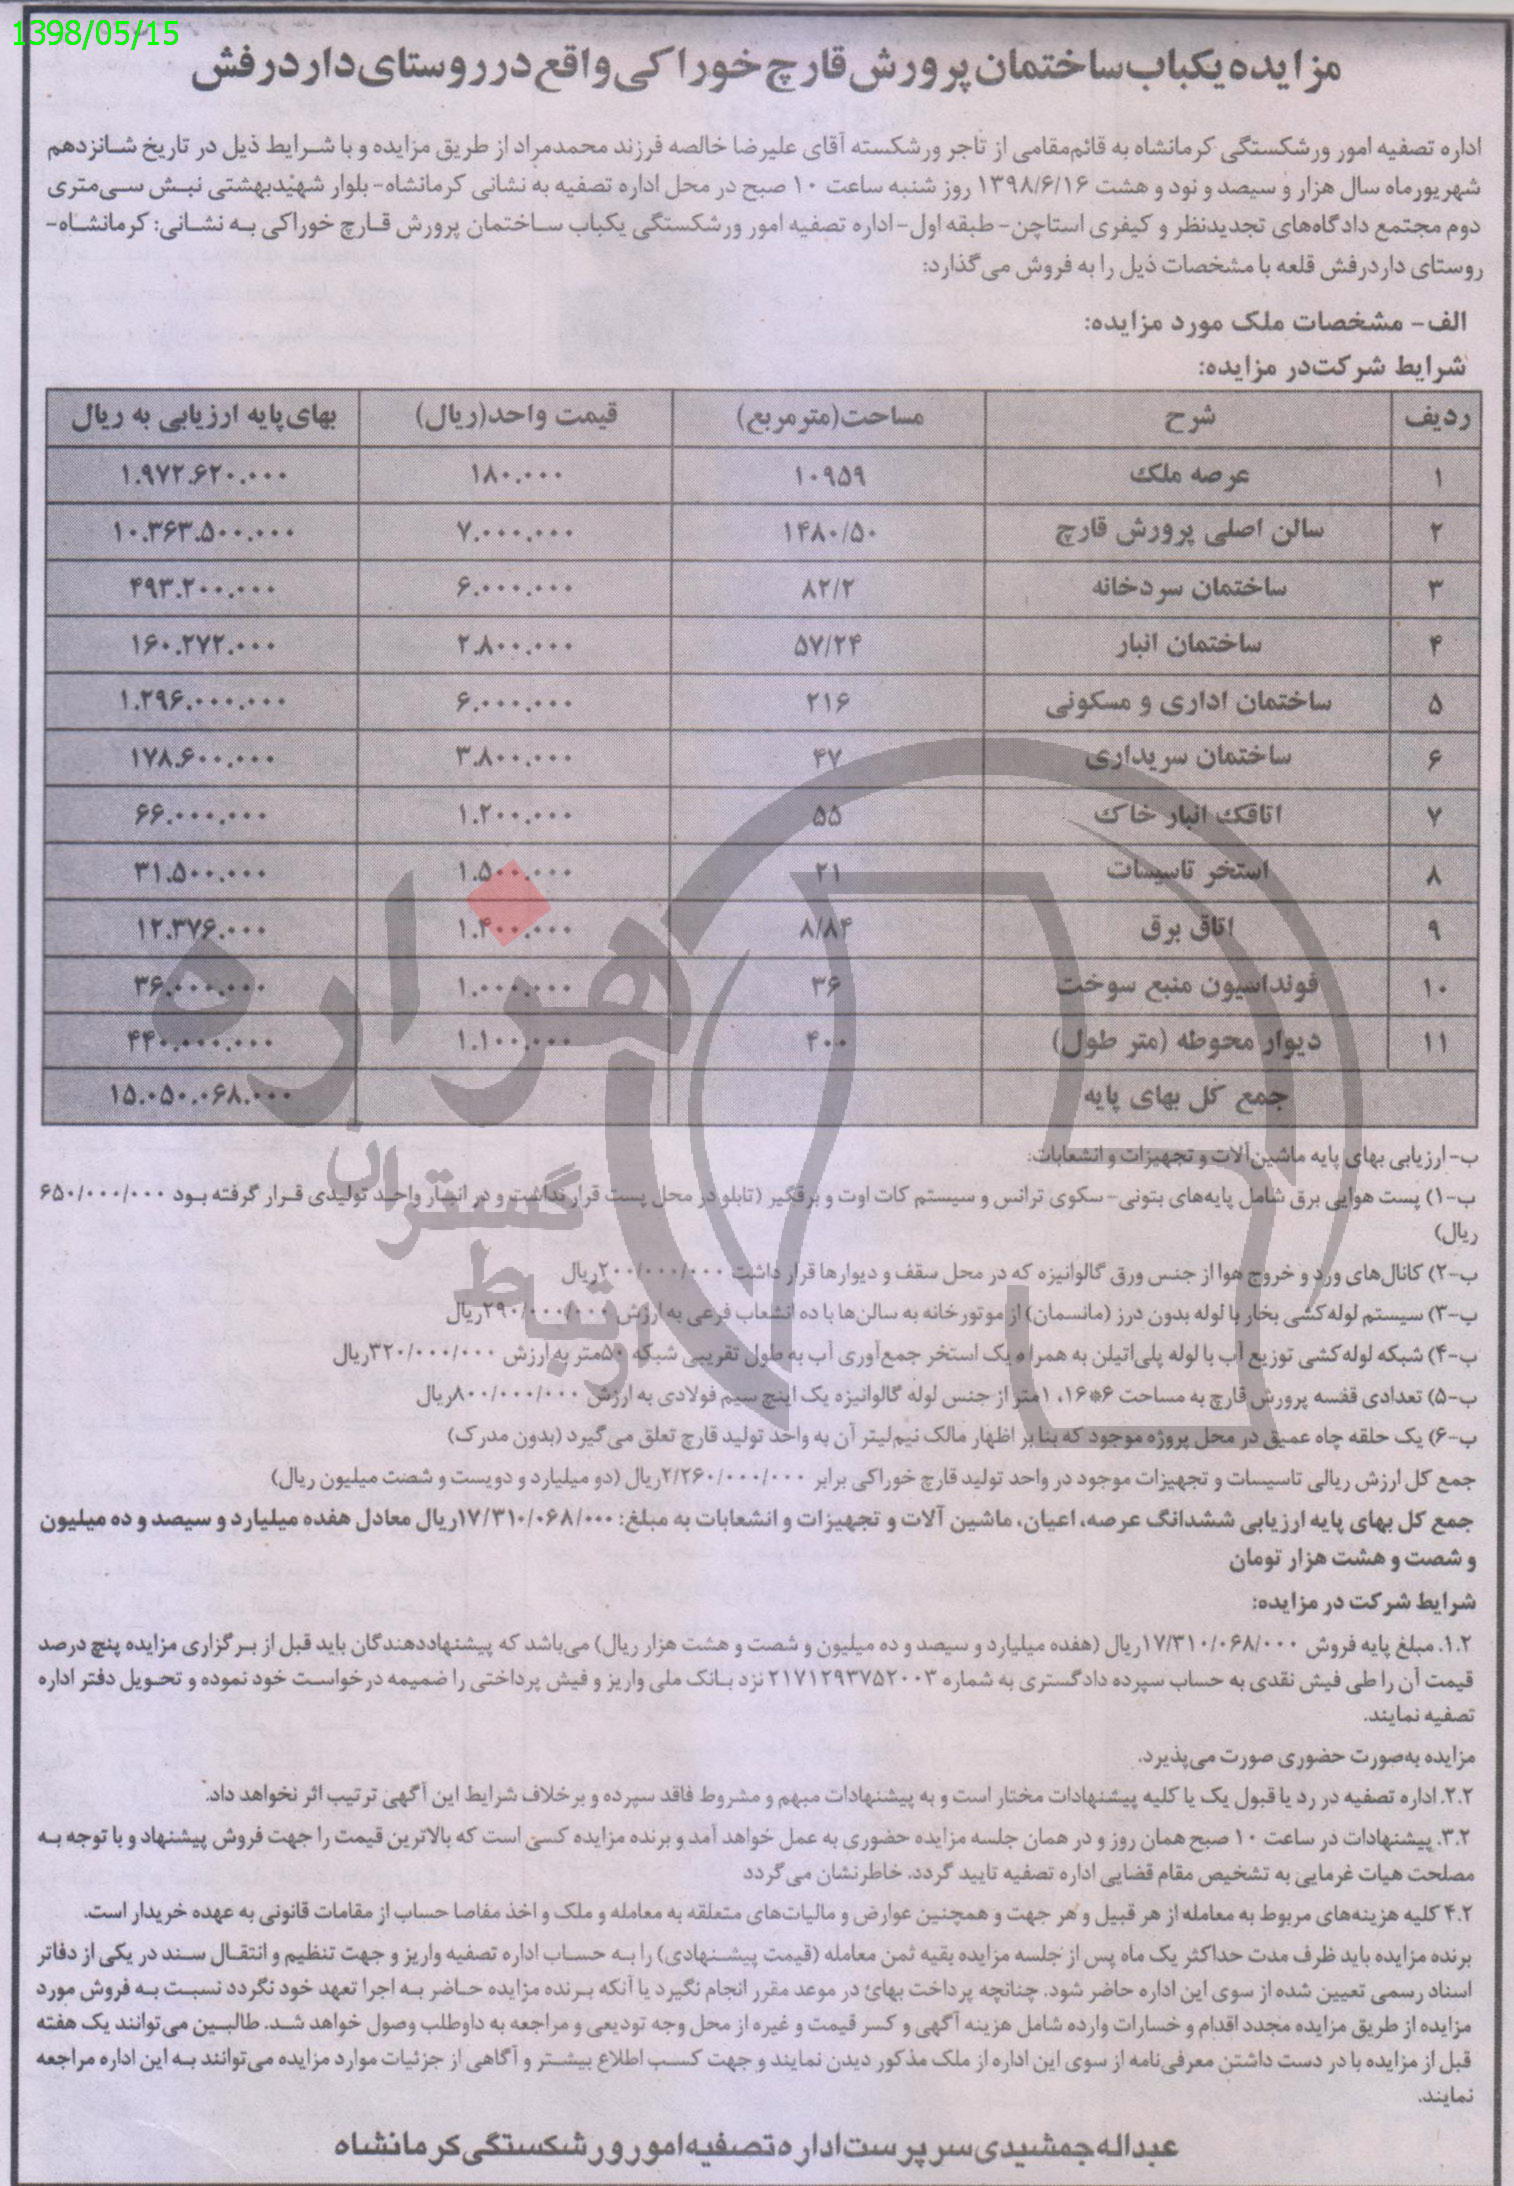 1398/05/15
مزایده یکباب ساختمان پرورش قارچ خوراکی واقع در روستای دار درفش
اداره تصفیه امور ورشکستگی کرمانشاه به قائم‌مقامی از تاجر ورشکسته آقای علیرضا خالصه فرزند محمدمراد از طریق مزایده و با شرایط ذیل در تاریخ شانزدهم
شهریورماه سال هزار و سیصد و نود و هشت ۱۳۹۸/۶/۱۶ روز شنبه ساعت ۱۰ صبح در محل اداره تصفیه به نشانی کرمانشاه- بلوار شهیدبهشتی نبش سی‌متری
دوم مجتمع دادگاه‌های تجدیدنظر و کیفری استاچن- طبقه اول- اداره تصفیه امور ورشکستگی یکباب ساختمان پرورش قارچ خوراکی به نشانی: کرمانشاه-
روستای داردرفش قلعه با مشخصات ذیل را به فروش می‌گذارد:
الف- مشخصات ملک مورد مزایده:
شرایط شرکت در مزایده:
ردیف شرح مساحت(مترمربع) قیمت واحد(ریال) بهای‌پایه ارزیابی به ریال
۱ عرصه ملک ۱۰۹۵۹ ۱۸۰.۰۰۰ ۱.۹۷۲.۶۲۰.۰۰۰
۲ سالن اصلی پرورش قارچ ۱۴۸۰/۵۰ ۷.۰۰۰.۰۰۰ ۱۰.۳۶۳.۵۰۰.۰۰۰
۳ ساختمان سردخانه ۸۲/۲ ۶.۰۰۰.۰۰۰ ۴۹۳.۲۰۰.۰۰۰
۴ ساختمان انبار ۵۷/۲۴ ۲.۸۰۰.۰۰۰ ۱۶۰.۲۷۲.۰۰۰
۵ ساختمان اداری و مسکونی ۲۱۶ ۶.۰۰۰.۰۰۰ ۱.۲۹۶.۰۰۰.۰۰۰
۶ ساختمان سریداری ۴۷ ۳.۸۰۰.۰۰۰ ۱۷۸.۶۰۰.۰۰۰
۷ اتاقک انبار خاک ۵۵ ۱.۲۰۰.۰۰۰ ۶۶.۰۰۰.۰۰۰
۸ استخر تاسیسات ۲۱ ۱.۵۰۰.۰۰۰ ۳۱.۵۰۰.۰۰۰
۹ اتاق برق ۸/۸۴ ۱.۴۰۰.۰۰۰ ۱۲.۳۷۶.۰۰۰
۱۰ فونداسیون منبع سوخت ۳۶ ۱.۰۰۰.۰۰۰ ۳۶.۰۰۰.۰۰۰
۱۱ دیوار محوطه (متر طول) ۴۰۰ ۱.۱۰۰.۰۰۰ ۴۴۰.۰۰۰.۰۰۰
جمع کل بهای پایه ۱۵.۰۵۰.۰۶۸.۰۰۰
ب- ارزیابی بهای پایه ماشین‌آلات و تجهیزات و انشعابات:
ب-۱) پست هوایی برق شامل پایه‌های بتونی- سکوی ترانس و سیستم کات اوت و برقگیر (تابلو در محل پست قرار نداشت و در انبار واحد تولیدی قرار گرفته بود ۶۵۰/۰۰۰/۰۰۰
ریال)
ب-۲) کانال‌های ورد و خروج هوا از جنس ورق گالوانیزه که در محل سقف و دیوارها قرار داشت ۲۰۰/۰۰۰/۰۰۰ریال
ب-۳) سیستم لوله‌کشی بخار با لوله بدون درز (مانسمان) از موتورخانه به سالن‌ها با ده انشعاب فرعی به ارزش ۲۹۰/۰۰۰/۰۰۰ریال
ب-۴) شبکه لوله‌کشی توزیع آب با لوله پلی‌اتیلن به همراه یک استخر جمع‌آوری آب به طول تقریبی شبکه ۵۰متر به ارزش ۳۲۰/۰۰۰/۰۰۰ریال
ب-۵) تعدادی قفسه پرورش قارچ به مساحت ۶*۱۶، ۱متر از جنس لوله گالوانیزه یک اینچ سیم فولادی به ارزش ۸۰۰/۰۰۰/۰۰۰ریال
ب-۶) یک حلقه چاه عمیق در محل پروژه موجود که بنا بر اظهار مالک نیم‌لیتر آن به واحد تولید قارچ تعلق می‌گیرد (بدون مدرک)
جمع کل ارزش ریالی تاسیسات و تجهیزات موجود در واحد تولید قارچ خوراکی برابر ۲/۲۶۰/۰۰۰/۰۰۰ریال (دو میلیارد و دویست و شصت میلیون ریال)
جمع کل بهای پایه ارزیابی ششدانگ عرصه، اعیان، ماشین آلات و تجهیزات و انشعابات به مبلغ: ۱۷/۳۱۰/۰۶۸/۰۰۰ریال معادل هفده میلیارد و سیصد و ده میلیون
و شصت و هشت هزار تومان
شرایط شرکت در مزایده:
۱.۲. مبلغ پایه فروش ۱۷/۳۱۰/۰۶۸/۰۰۰ریال (هفده میلیارد و سیصد و ده میلیون و شصت و هشت هزار ریال) می‌باشد که پیشنهاددهندگان باید قبل از برگزاری مزایده پنج درصد
قیمت آن را طی فیش نقدی به حساب سپرده دادگستری به شماره ۲۱۷۱۲۹۳۷۵۲۰۰۳ نزد بانک ملی واریز و فیش پرداختی را ضمیمه درخواست خود نموده و تحویل دفتر اداره
تصفیه نمایند.
مزایده به‌صورت حضوری صورت می‌پذیرد.
۲.۲. اداره تصفیه در رد یا قبول یک یا کلیه پیشنهادات مختار است و به پیشنهادات مبهم و مشروط فاقد سپرده و برخلاف شرایط این آگهی ترتیب اثر نخواهد داد.
۳.۲. پیشنهادات در ساعت ۱۰ صبح همان روز و در همان جلسه مزایده حضوری به عمل خواهد آمد و برنده مزایده کسی است که بالاترین قیمت را جهت فروش پیشنهاد و با توجه به
مصلحت هیات غرمایی به تشخیص مقام قضایی اداره تصفیه تایید گردد. خاطرنشان می‌گردد
۴.۲ کلیه هزینه‌های مربوط به معامله از هر قبیل و هر جهت و همچنین عوارض و مالیات‌های متعلقه به معامله و ملک و اخذ مفاصا حساب از مقامات قانونی به عهده خریدار است.
برنده مزایده باید ظرف مدت حداکثر یک ماه پس از جلسه مزایده بقیه ثمن معامله (قیمت پیشنهادی) را به حساب اداره تصفیه واریز و جهت تنظیم و انتقال سند در یکی از دفاتر
اسناد رسمی تعیین شده از سوی این اداره حاضر شود. چنانچه پرداخت بهائ در موعد مقرر انجام نگیرد یا آنکه برنده مزایده حاضر به اجرا تعهد خود نگردد نسبت به فروش مورد
مزایده از طریق مزایده مجدد اقدام و خسارات وارده شامل هزینه آگهی و کسر قیمت و غیره از محل وجه تودیعی و مراجعه به داوطلب وصول خواهد شد. طالبین می‌توانند یک هفته
قبل از مزایده با در دست داشتن معرفی‌نامه از سوی این اداره از ملک مذکور دیدن نمایند و جهت کسب اطلاع بیشتر و آگاهی از جزئیات موارد مزایده می‌توانند به این اداره مراجعه
نمایند.
عبداله جمشیدی سرپرست اداره تصفیه امور ورشکستگی کرمانشاه
هزاره
گستران
ارتباط